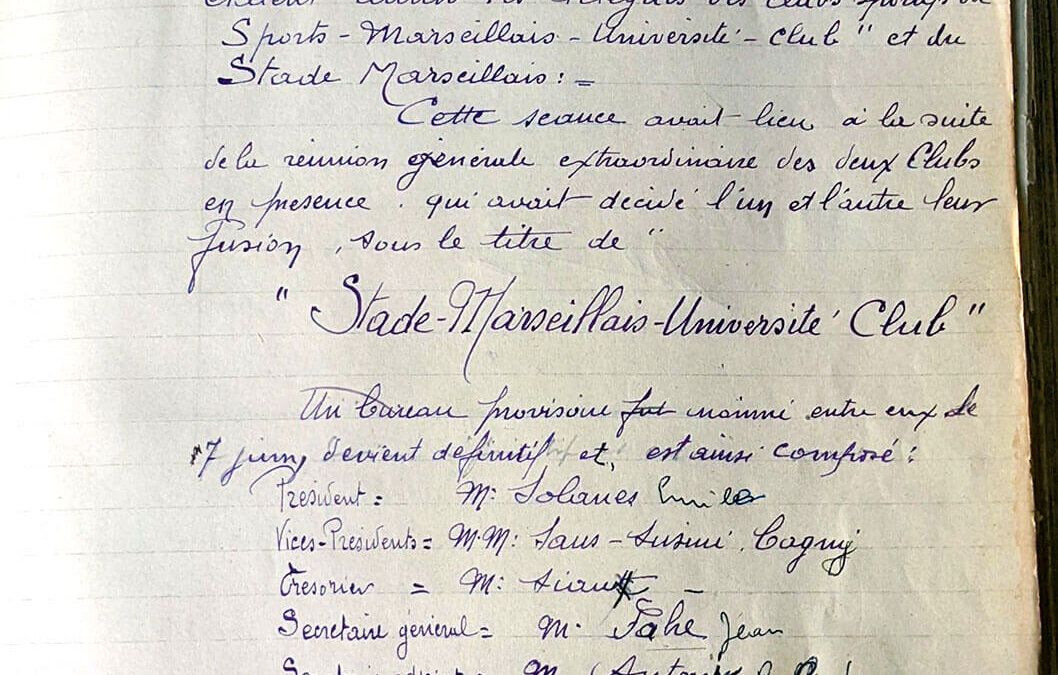 étaient réunis les délégués des clubs sportifs du
Sports - Marseillais - Université - Club" et du
Stade Marseillais : =
Cette seance avait lieu à la suite
de la réunion générale extraordinaire des deux Clubs
en présence . qui avait décidé l'un et l'autre leur
fusion , sous le titre de "
" Stade-Marseillais-Université Club "
Un bureau provisoire fut nommé entre eux le
7 juin, devient définitif et, est ainsi composé :
Président = M: Solanes Emile
Vices-Présidents = M.M: Sans - Susini . Cagny
Trésorier = M: -
Secretaire général = M. Fahe Jean
M.